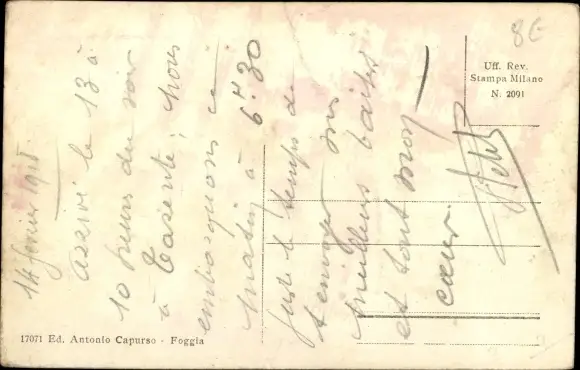 14 février 1918.
Arrivé le 13 à
10 heures du soir
à Tarente; nous
embarquons ce
matin à 6h.30
juste le temps de
t'envoyer mes
meilleurs baisers
et tout mon
cœur.
8E
Uff. Rev.
Stampa Milano
N. 2091
17071 Ed. Antonio Capurso - Foggia